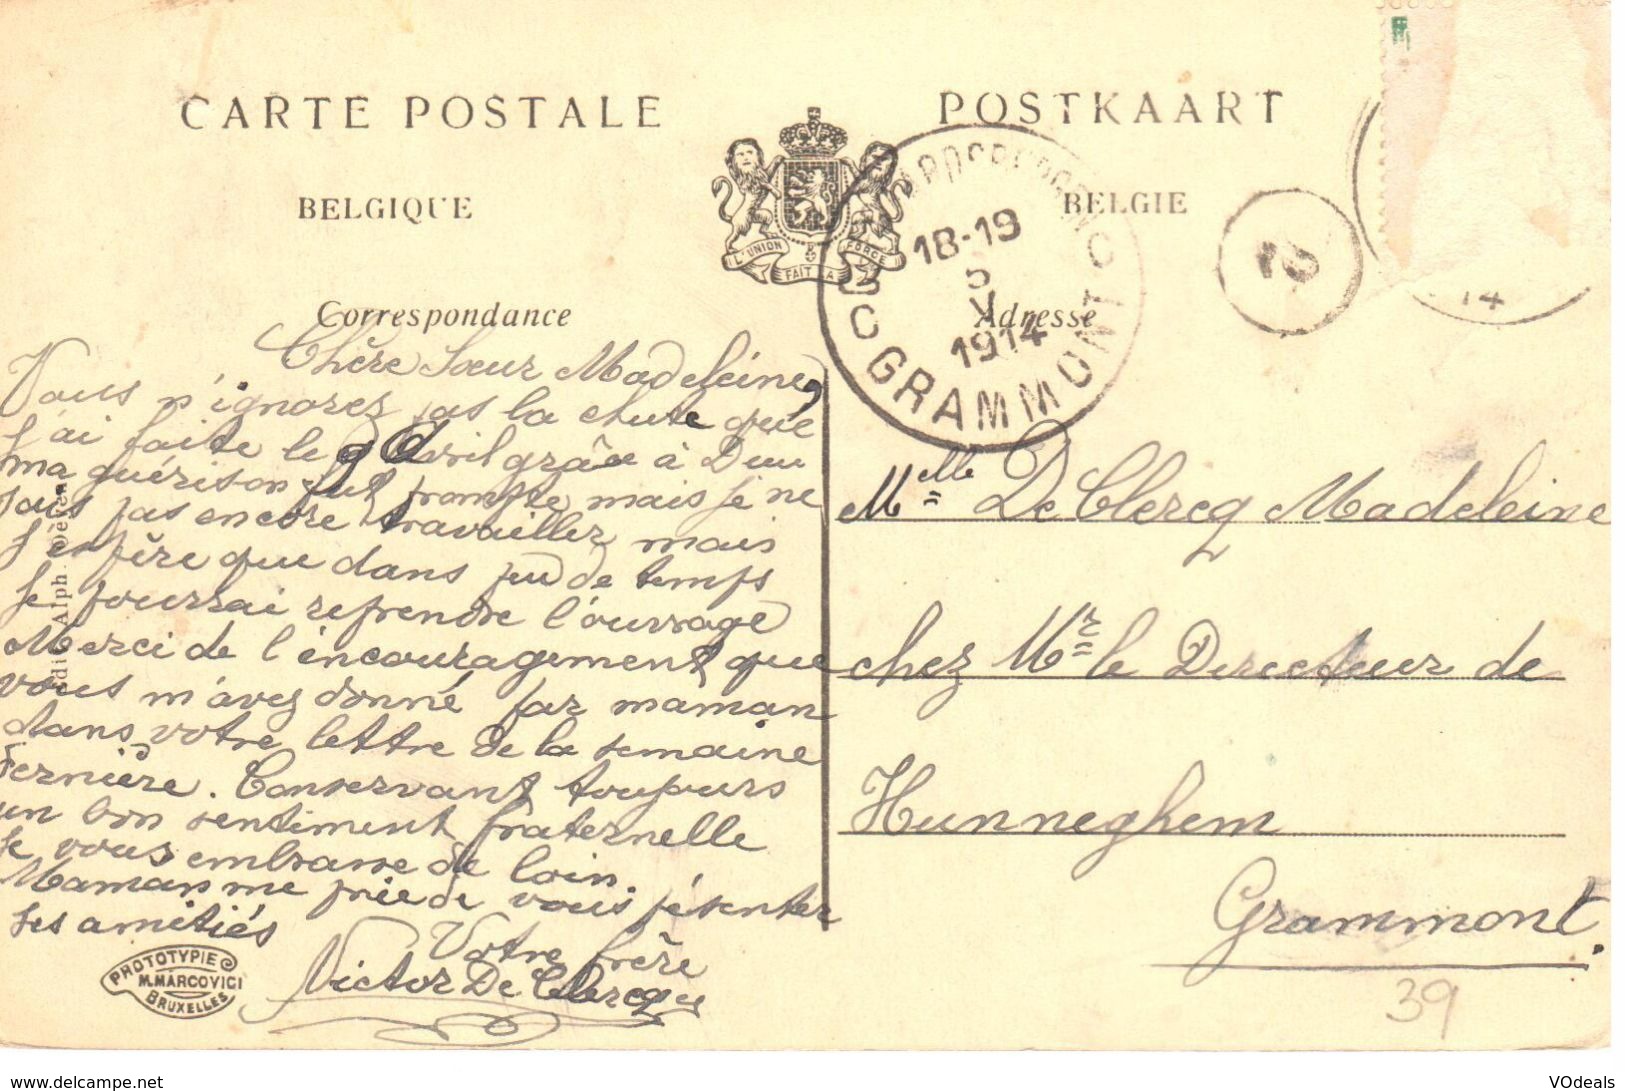 CARTE POSTALE
POSTKAART
BELGIQUE
BELGIE
L'UNION FAIT LA FORCE
18-19
5
V
1914
GRAMMONT
13
14
Correspondance
Adresse
Chère Sœur Madeleine,
Vous n'ignorez pas la chute que
j'ai faite le 9 Avril grâce à Dieu
ma guérison fut prompte mais je ne
sais pas encore travailler mais
j'espère que dans peu de temps
je pourrai reprendre l'ouvrage
Merci de l'encouragement que
vous m'avez donné par maman
dans votre lettre de la semaine
dernière. Conservant toujours
un bon sentiment fraternelle
je vous embrasse de loin.
Maman me prie de vous présenter
ses amitiés
Votre frère
Victor De Clercq
Melle De Clercq Madeleine
chez Mr le Directeur de
Hunneghem
Grammont.
39
Alph.
PROTOTYPIE
M. MARCOVICI
BRUXELLES
https://www.delcampe.net
VOdeals